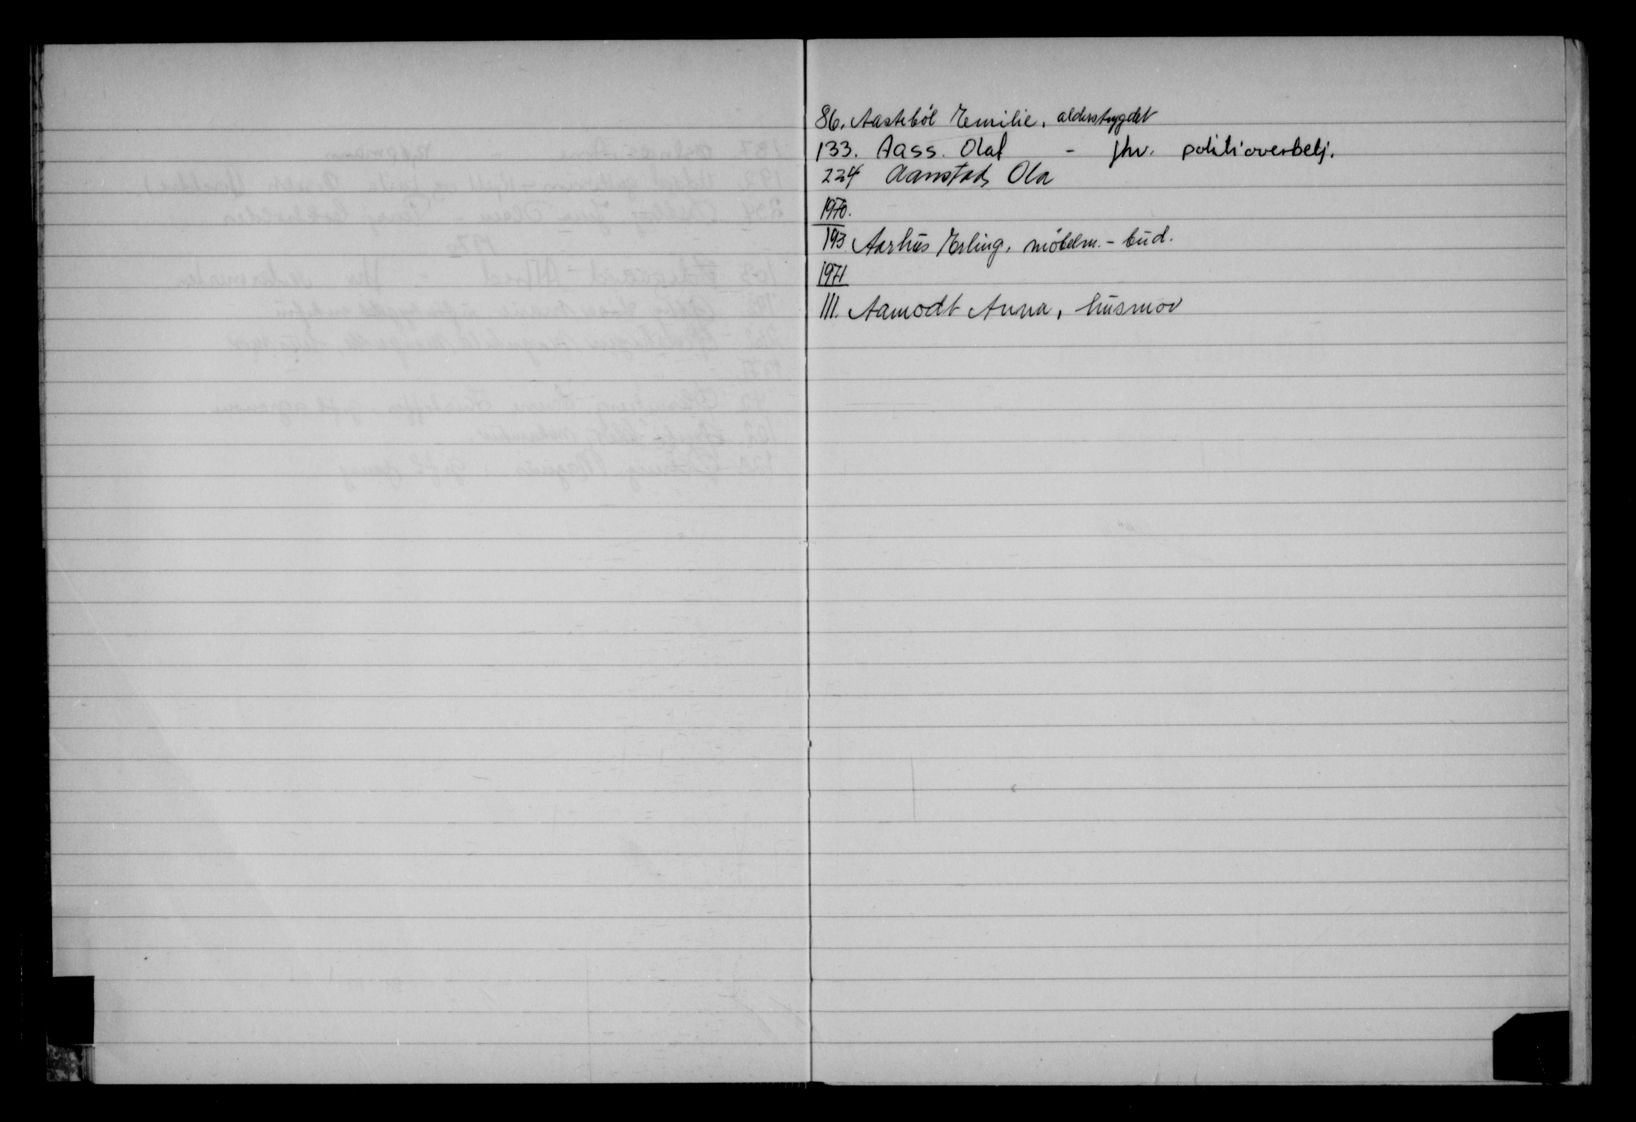 86. Aastebøl Emilie, alderstrygdet
133. Aass. Olaf - fhv. politioverbetj.
224 Aanstad, Ola
1970.
193 Aarhus Erling, møbelm. - bud.
1971
111. Aamodt Anna, husmov